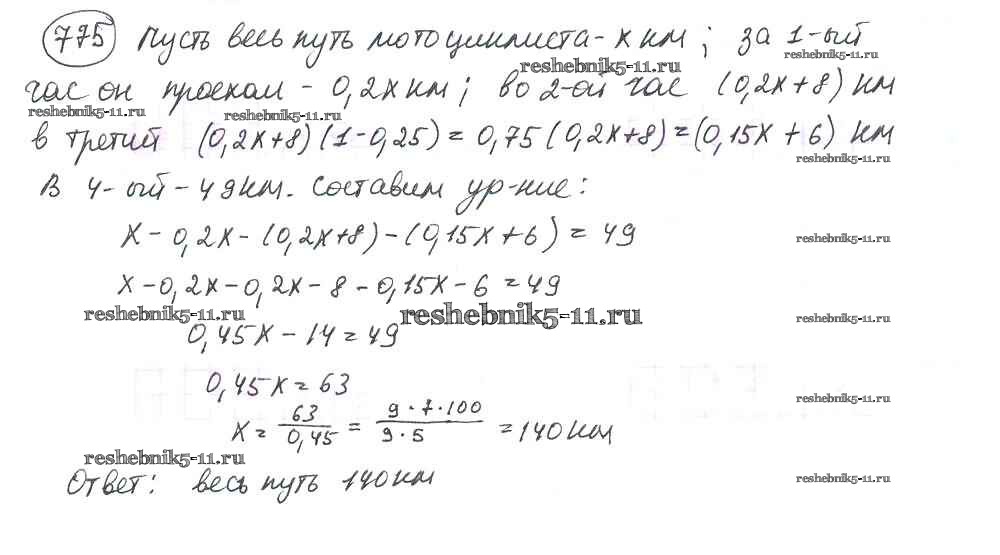 775 Пусть весь путь мотоциклиста - x км; за 1-ый
reshebnik5-11.ru
reshebnik5-11.ru
час он проехал - 0,2x км; во 2-ой час (0,2x+8) км
reshebnik5-11.ru
reshebnik5-11.ru
в третий (0,2x+8)(1-0,25) = 0,75(0,2x+8) = (0,15x+6) км
reshebnik5-11.ru
В 4-ый - 49км. Составим ур-ние:
x - 0,2x - (0,2x+8) - (0,15x+6) = 49
reshebnik5-11.ru
x - 0,2x - 0,2x - 8 - 0,15x - 6 = 49
reshebnik5-11.ru
reshebnik5-11.ru
reshebnik5-11.ru
0,45x - 14 = 49
0,45x = 63
reshebnik5-11.ru
x = 63/0,45 = 9·7·100/9·5 = 140 км
reshebnik5-11.ru
Ответ: весь путь 140 км
reshebnik5-11.ru